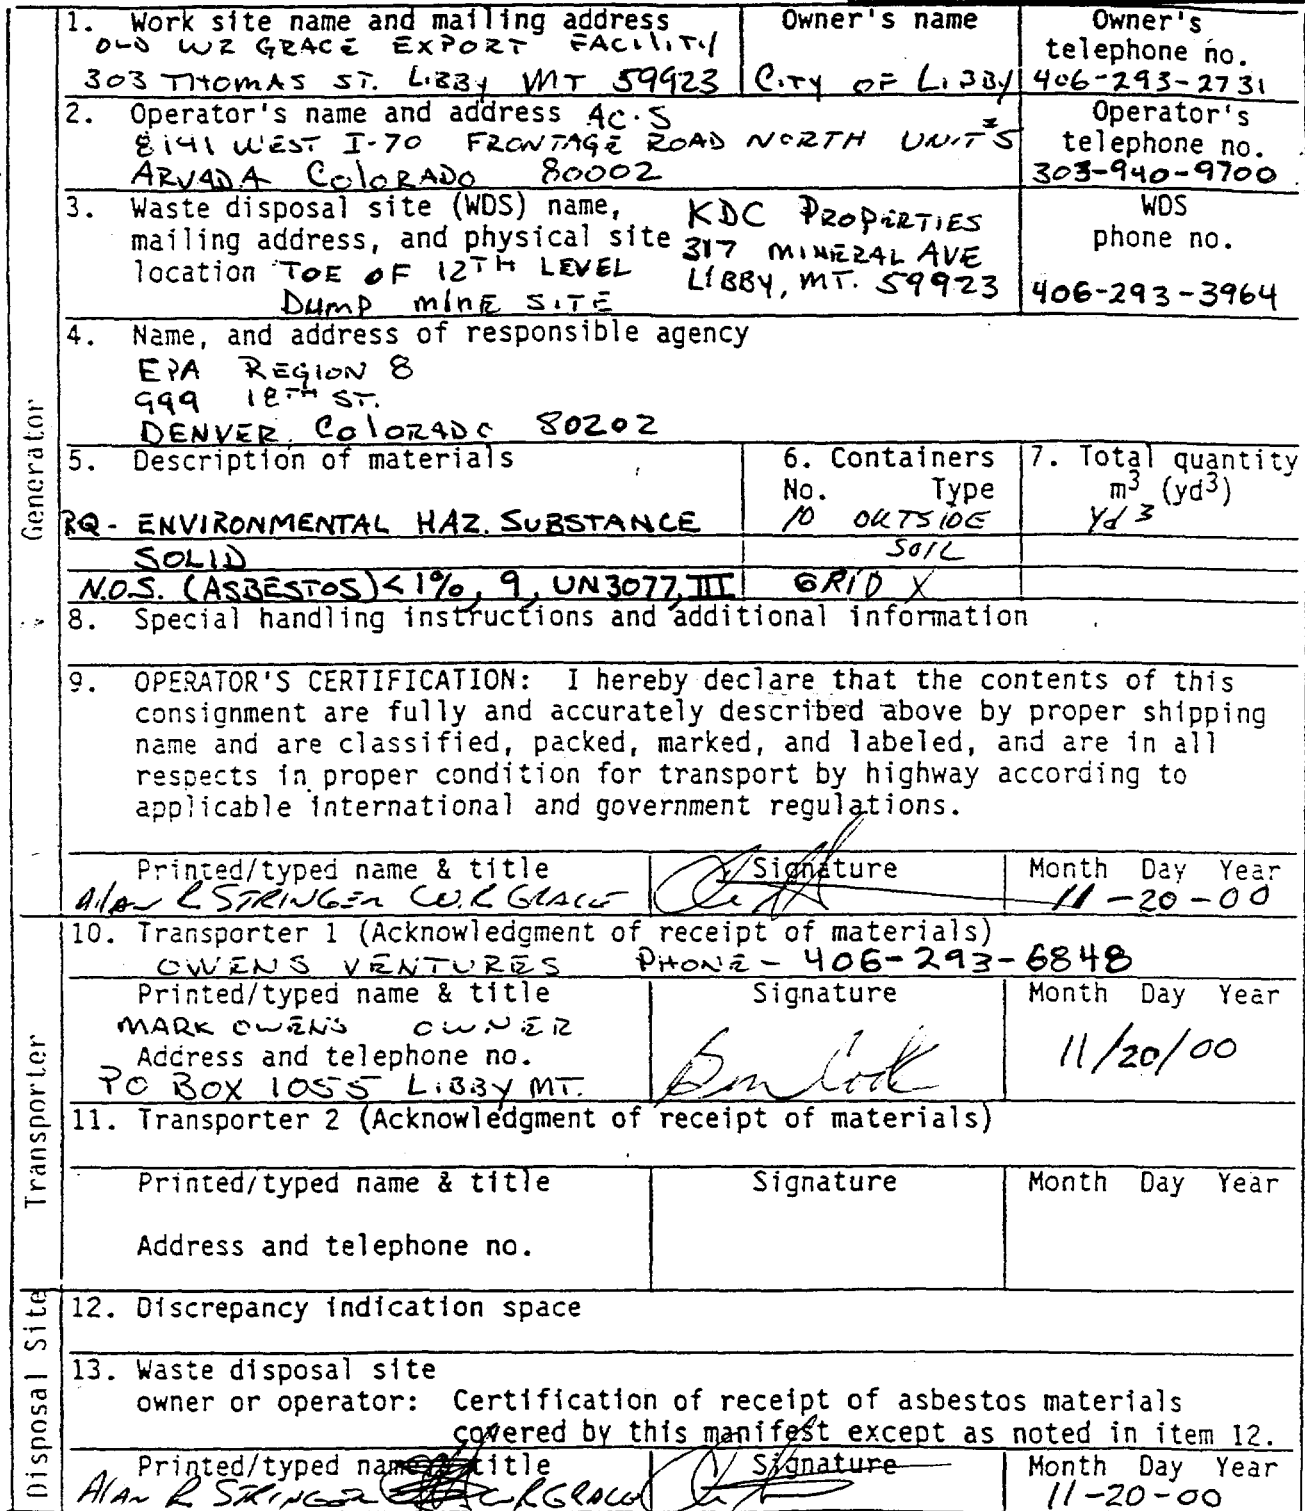 1. Work site name and mailing address
OLD WR GRACE EXPORT FACILITY
303 THOMAS ST. LIBBY MT 59923
Owner's name
CITY OF LIBBY
Owner's
telephone no.
406-293-2731
2. Operator's name and address AC.S
8141 WEST I-70 FRONTAGE ROAD NORTH UNIT #5
ARVADA COLORADO 80002
Operator's
telephone no.
303-940-9700
3. Waste disposal site (WDS) name,
mailing address, and physical site
location TOE OF 12TH LEVEL
DUMP MINE SITE
KDC PROPERTIES
317 MINERAL AVE
LIBBY, MT. 59923
WDS
phone no.
406-293-3964
4. Name, and address of responsible agency
EPA REGION 8
999 18TH ST.
DENVER, COLORADO 80202
5. Description of materials
RQ - ENVIRONMENTAL HAZ. SUBSTANCE
SOLID
N.O.S. (ASBESTOS) < 1%, 9, UN3077, III
6. Containers
No. Type
10 OUTSIDE
SOIL
GRID X
7. Total quantity
m3 (yd3)
Yd 3
8. Special handling instructions and additional information
9. OPERATOR'S CERTIFICATION: I hereby declare that the contents of this
consignment are fully and accurately described above by proper shipping
name and are classified, packed, marked, and labeled, and are in all
respects in proper condition for transport by highway according to
applicable international and government regulations.
Printed/typed name & title
Alan R STRINGER W.R GRACE
Signature
Month Day Year
11-20-00
10. Transporter 1 (Acknowledgment of receipt of materials)
OWENS VENTURES PHONE - 406-293-6848
Printed/typed name & title
MARK OWENS OWNER
Address and telephone no.
PO BOX 1055 LIBBY MT.
Signature
Month Day Year
11/20/00
11. Transporter 2 (Acknowledgment of receipt of materials)
Printed/typed name & title
Address and telephone no.
Signature
Month Day Year
12. Discrepancy indication space
13. Waste disposal site
owner or operator: Certification of receipt of asbestos materials
covered by this manifest except as noted in item 12.
Printed/typed name & title
Alan R STRINGER W.R GRACE
Signature
Month Day Year
11-20-00
Generator
Transporter
Disposal Site